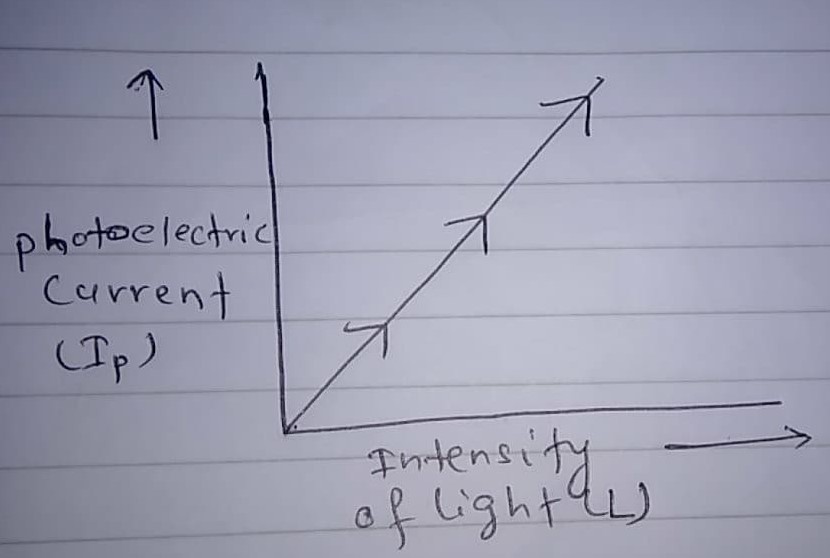 photoelectric
Current
(Ip)
Intensity
of light (L)